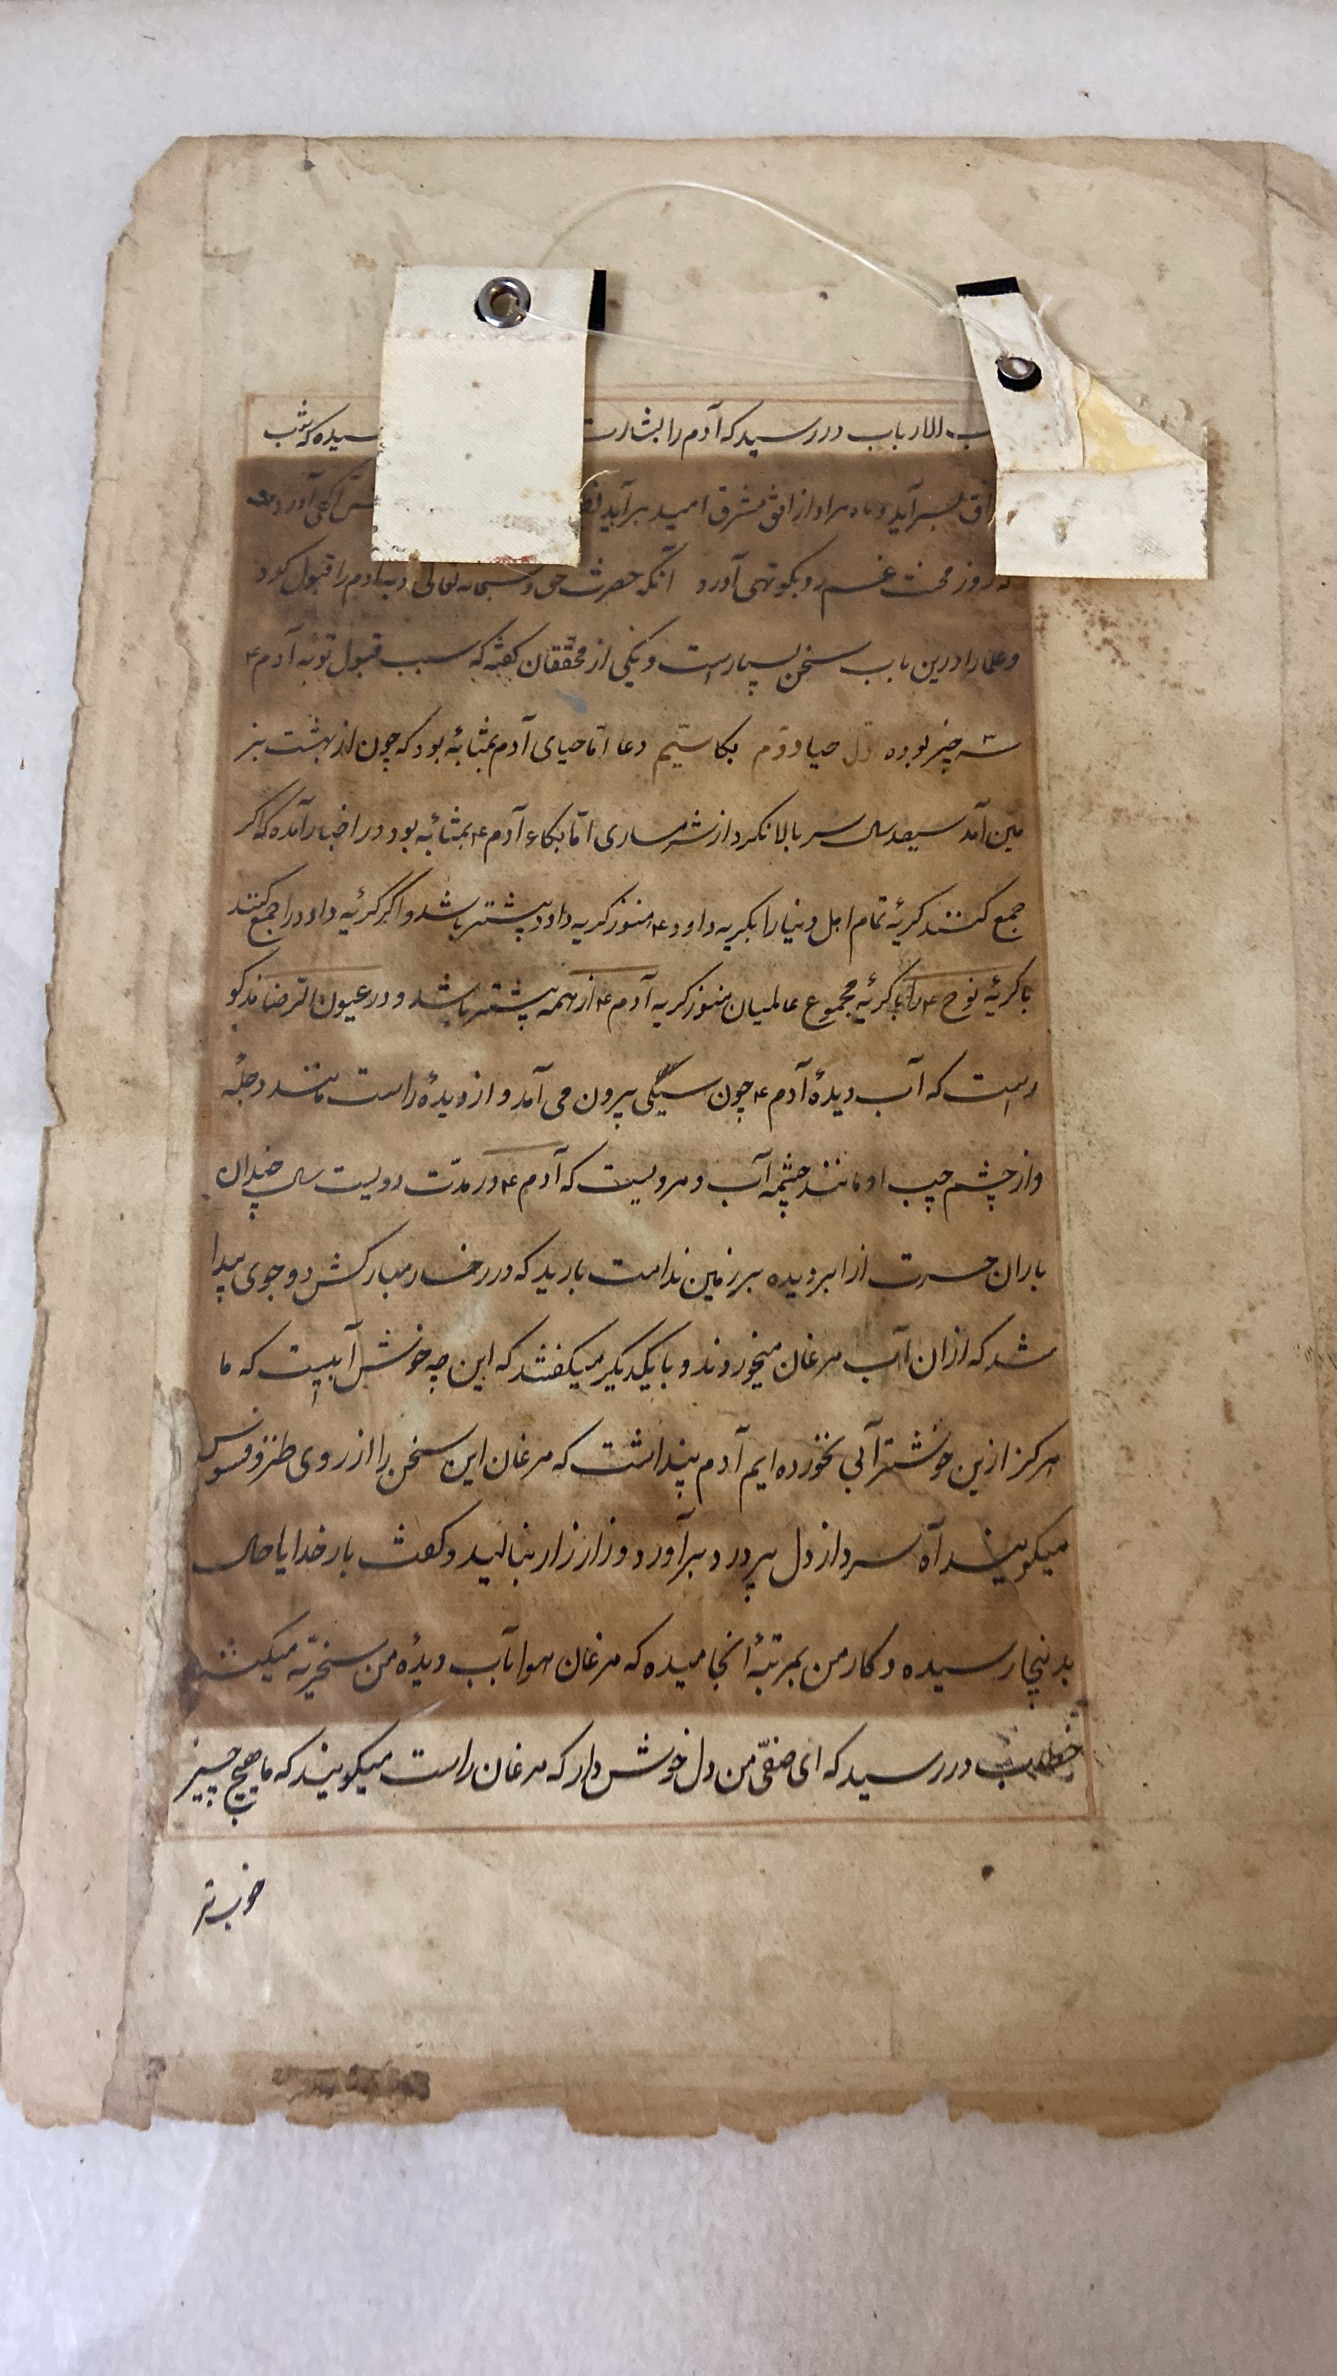 الارباب در رسید که آدم را بشارت سیده که شب
بسر آید و ماه مراد از افق مشرق امید برآید
روز محنت غم رو بکوتهی آورد آنکه حضرت حق سبحانه تعالی توبه آدم را قبول کرد
و علما را درین باب سخن بسیار است و یکی از محققان کفته که سبب قبول توبه آدم ۴
سه چیز بوده اول حیا دوم بکا سیّم دعا امّا حیای آدم بمثابهٔ بود که چون از بهشت بز
مین آمد سیصد سال سر بالا نکرد از شرمساری امّا بکاء آدم ۴ بمثابهٔ بود در اخبار آمده که اکر
جمع کنند کریهٔ تمام اهل دنیا را بکریه داود ۴ هنوز کریه داود بیشتر باشد و اکر کریهٔ داود را جمع کنند
با کریهٔ نوح ۴ را با کریهٔ مجموع عالمیان هنوز کریه آدم ۴ از همه بیشتر باشد و در عیون الرضا مذکو
راست که آب دیدهٔ آدم ۴ چون سیکی بیرون می آمد و از دیدهٔ راست مانند دجلهٔ
و از چشم چپ او مانند چشمه آب و مرویست که آدم ۴ در مدّت دویست سال چندان
باران حسرت از ابر دیده بر زمین ندامت بارید که در رخسار مبارکش دو جوی پیدا
شد که از ان آب مرغان میخوردند و با یکدیکر میکفتند که این چه خوش آبیست که ما
هرکز ازین خوشتر آبی نخورده ایم آدم پنداشت که مرغان این سخن را از روی طنز و فسوس
میکویند آه سرد از دل پر درد برآورد و زار زار بنالید و کفت بار خدایا حال
بدینجا رسیده و کار من بمرتبهٔ انجامیده که مرغان هوا بآب دیدهٔ من سخریّه میکنند
خطاب در رسید که ای صفیّ من دل خوش دار که مرغان راست میکویند که ما هیچ چیز
خوب تر